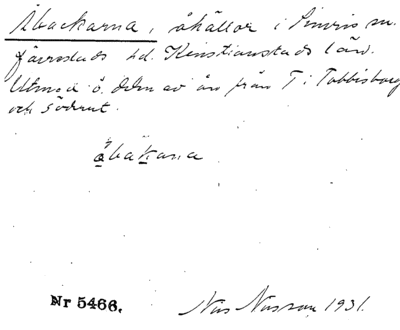 Åbackarna, åhällor i Simris sn.
Järrestads hd. Kristianstads län.
Utmed ö. delen av ån från T i Tobbisborg
och söderut.
åbakana
Nr 5466. Nils Nilsson 1931.